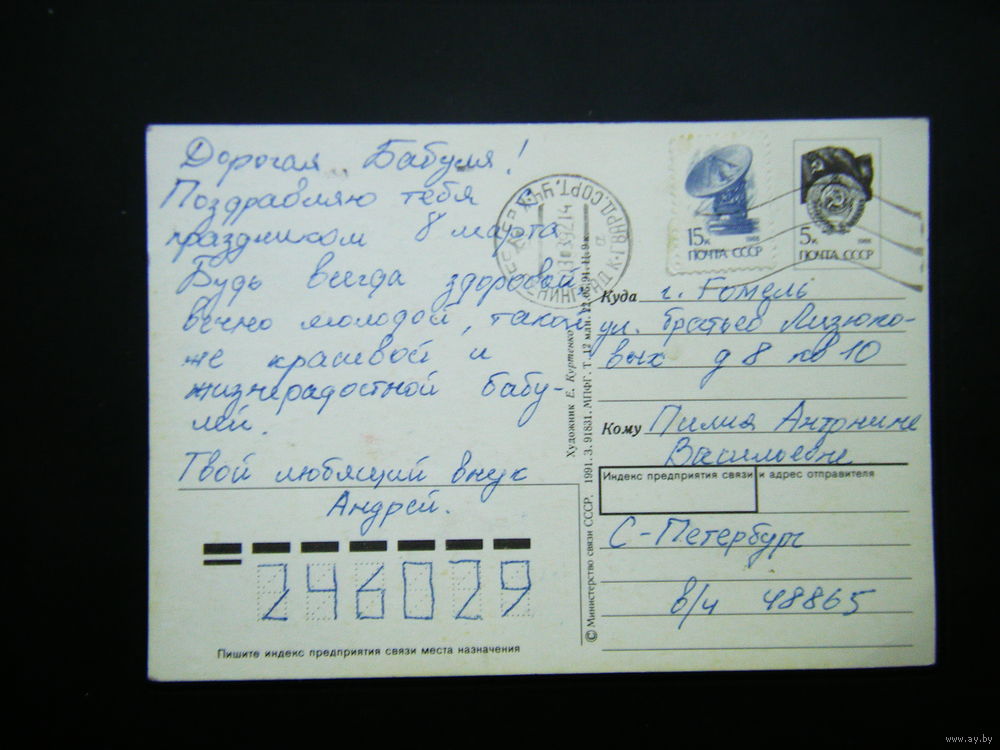 Дорогая Бабуля!
Поздравляю тебя
праздником 8 марта
Будь всегда здоровой,
вечно молодой, такой
же красивой и
жизнерадостной бабу-
лей.
Твой любящий внук
Андрей.
246029
Пишите индекс предприятия связи места назначения
© Министерство связи СССР. 1991. З. 91831. МПФГ. Т. 12 млн.
Художник Е. Куртенко
15к 1988
ПОЧТА СССР
5к 1988
ПОЧТА СССР
Куда г. Гомель
ул. братьев Лизюко-
вых д 8 кв 10
Кому Пилиа Антонине
Васильевне
Индекс предприятия связи и адрес отправителя
С-Петербург
в/ч 48865
www.ay.by